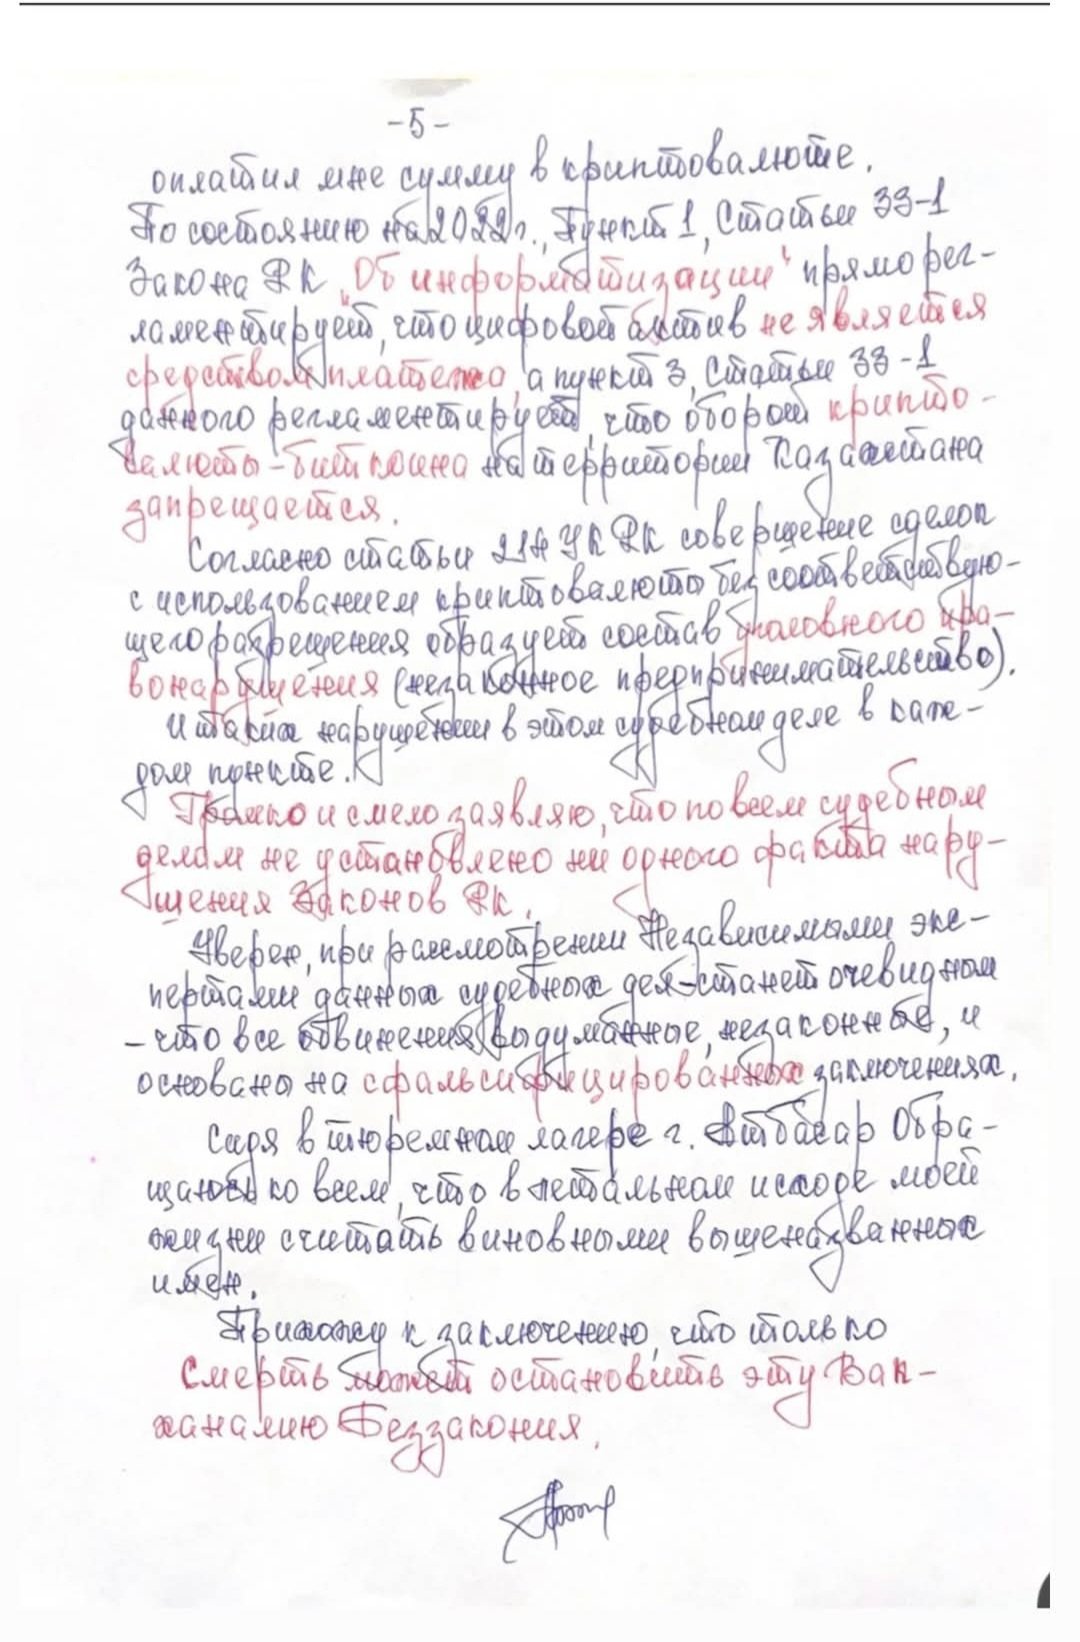 -5-
оплатил мне сумму в криптовалюте.
По состоянию на 2022г., Пункт 1, Статьи 33-1
Закона РК „Об информатизации" прямо рег-
ламентирует, что цифровой актив не является
средством платежа, а пункт 3, Статьи 33-1
данного регламентирует, что оборот крипто-
валюты-биткоина на территории Казахстана
запрещается.
Согласно статьи 214 УК РК совершение сделок
с использованием криптовалюты без соответствую-
щего разрешения образует состав уголовного пра-
вонарушения (незаконное предпринимательство).
И таких нарушений в этом судебном деле в каж-
дом пункте.
Громко и смело заявляю, что по всем судебным
делам не установлено ни одного факта нару-
шения Законов РК.
Уверен, при рассмотрении Независимыми экс-
пертами данных судебных дел-станет очевидным
-что все обвинения выдуманные, незаконные, и
основаны на сфальсифицированных заключениях.
Сидя в тюремном лагере г. Атбасар Обра-
щаюсь ко всем, что в летальном исходе моей
жизни считать виновными вышеназванных
имен.
Прихожу к заключению, что только
Смерть может остановить эту Вак-
ханалию Беззакония.